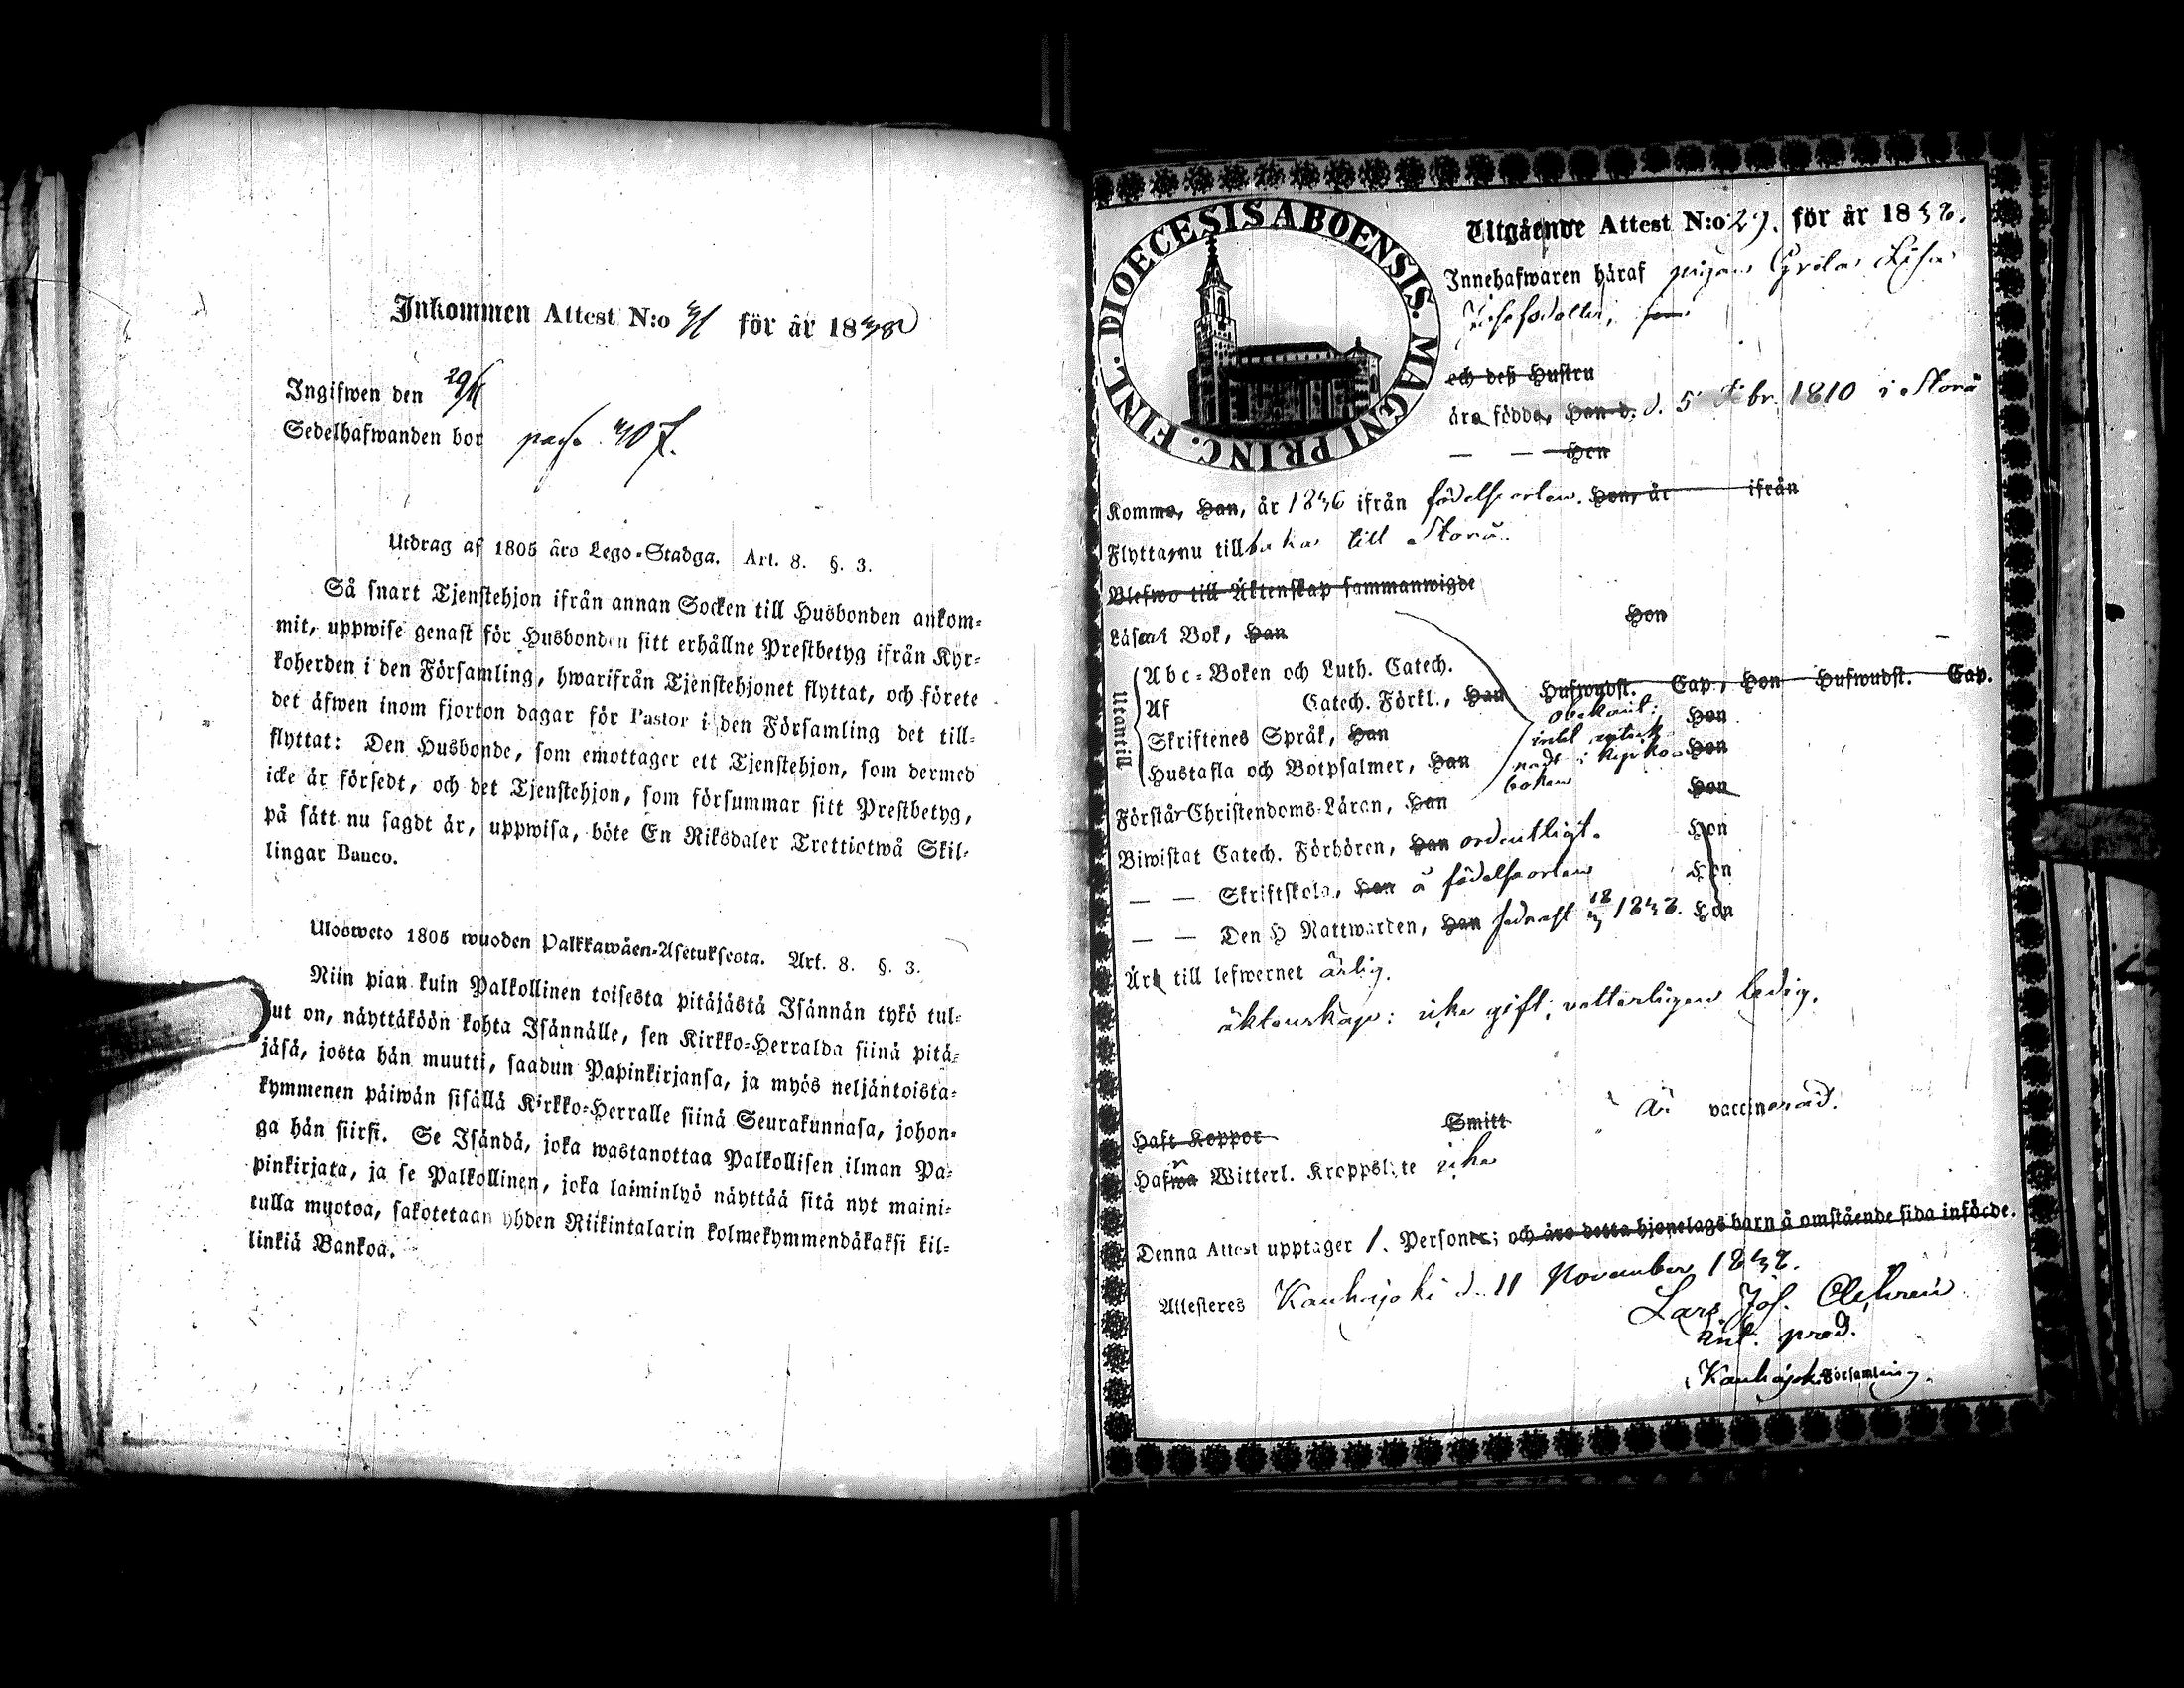 Inkommen Attest N:o för år 1838
Ingifwen den 29/11
Sedelhafwanden bor pag. 407.
Utdrag af 1805 års Lego-Stadga. Art. 8. §. 3.
Så snart Tjenstehjon ifrån annan Socken till Husbonden ankom-
mit, uppwise genast för Husbonden sitt erhållne Prestbetyg ifrån Kyr-
koherden i den Församling, hwarifrån Tjenstehjonet flyttat, och förete
det äfwen inom fjorton dagar för Pastor i den Församling det till-
flyttat: Den Husbonde, som emottager ett Tjenstehjon, som dermed
icke är försedt, och det Tjenstehjon, som försummar sitt Prestbetyg,
på sätt nu sagdt är, uppwisa, böte En Riksdaler Trettiotwå Skil-
lingar Banco.
Ulosweto 1805 wuoden Palkkawäen-Asetuksesta. Art. 8. §. 3.
Niin pian kuin Palkollinen toisesta pitäjästä Isännän tykö tul-
lut on, näyttäköön kohta Isännälle, sen Kirkko-Herralda siinä pitä-
jäsä, josta hän muutti, saadun Papinkirjansa, ja myös neljäntoista-
kymmenen päiwän sisällä Kirkko-Herralle siinä Seurakunnasa, johon-
ga hän siirsi. Se Isändä, joka wastanottaa Palkollisen ilman Pa-
pinkirjata, ja se Palkollinen, joka laiminlyö näyttää sitä nyt maini-
tulla muotoa, sakotetaan yhden Riikintalarin kolmekymmendäkaksi kil-
linkiä Bankoa.
DIOECESIS ABOENSIS. MAGNI PRINC. FINL.
Utgående Attest N:o 29. för år 1838.
Innehafwaren häraf pigan Lisa
och deß Hustru
äro födde, Han d. d. 5 Febr. 1810 i Storå
— — Hon
Komme, Han, år 1836 ifrån födelseorten. Hon, år ifrån
Flytta, nu tillbaka till Storå.
Blefwo till Äktenskap sammanwigde
Läsa i Bok, Han Hon
Utantill
Abc-Boken och Luth. Catech.
Af Catech. Förkl., Han Hufwudst. Cap., Hon Hufwudst. Cap.
Skriftenes Språk, Han obekant; Hon
Hustafla och Botpsalmer, Han intet anteck-
nadt i kyrko- Hon
boken
Förstår Christendoms-Läran, Han Hon
Biwistat Catech. Förhören, Han ordentligt. Hon
— — Skriftskola, Han å födelseorten Hon
— — Den H. Nattwarden, Han sednast 1838. Hon
Äro till lefwernet ärlig.
äktenskap: icke gift, vetterligen ledig.
Haft Koppor Smitt är vaccinerad.
Hafwa Witterl. Kroppslyte icke
Denna Attest upptager 1. Personer; och äro detta hjonelags barn å omstående sida införde.
Attesteres Kauhajoki d. 11 November 1838.
Lars Joh.
Kauhajoki Församling.